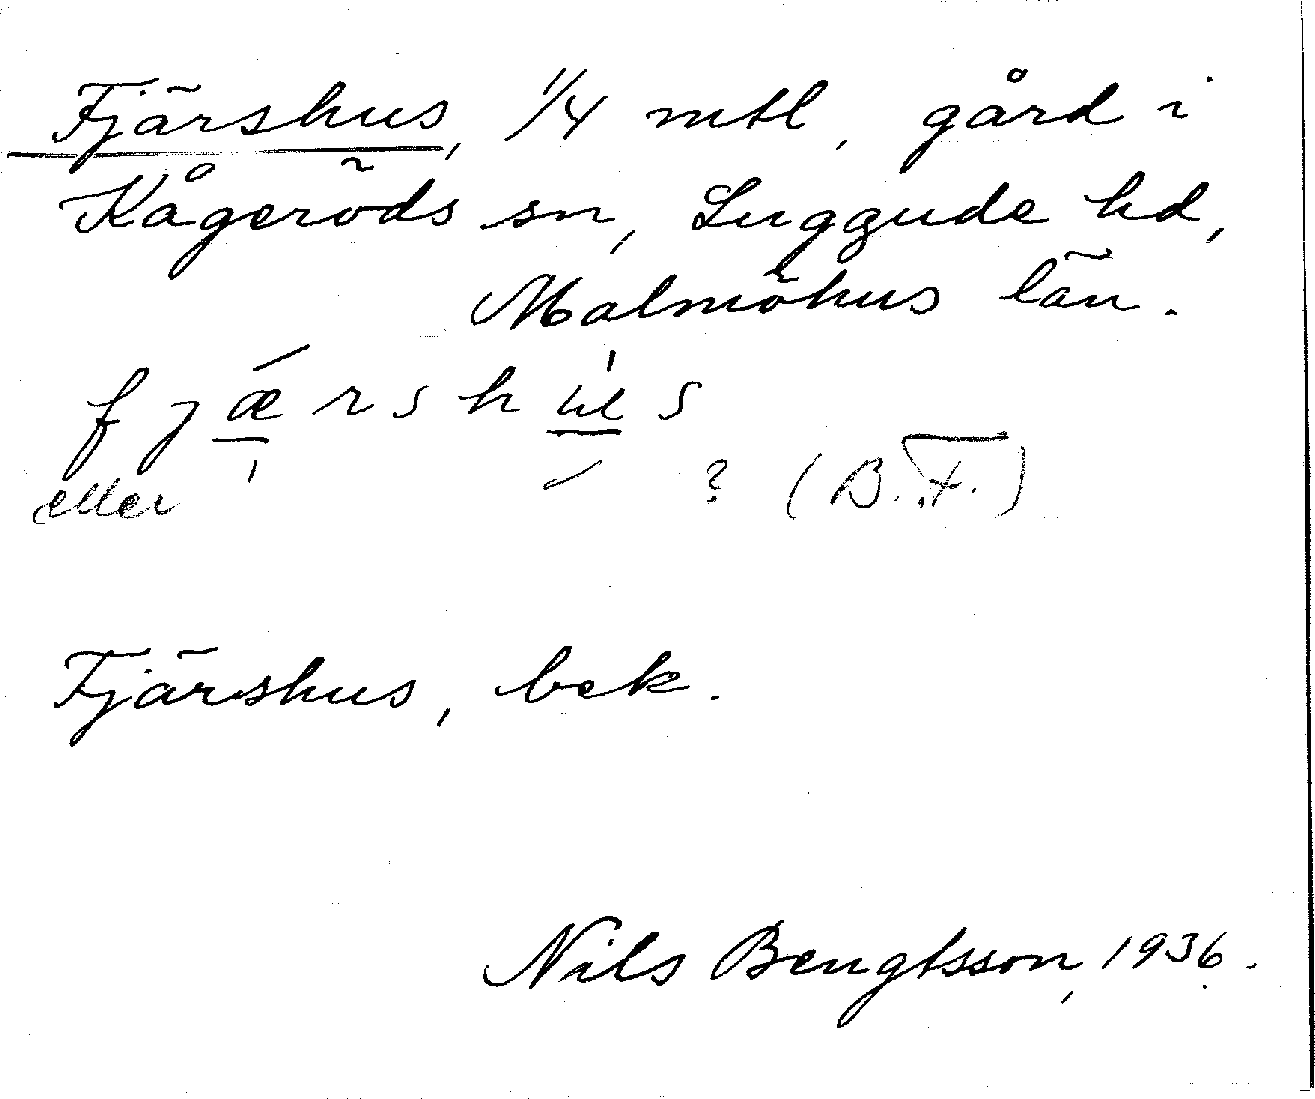 Fjärshus, 1/4 mtl, gård i
Kågeröds sn, Luggude hd,
Malmöhus län.
fjǽrshu̍s
eller ˈ ´ ? (B.F.)
Fjärshus, bek.
Nils Bengtsson, 1936.